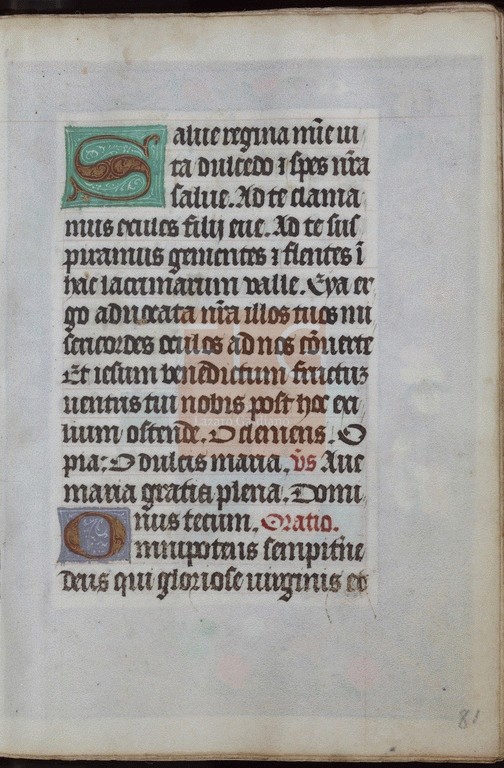 Salue regina mr̄ie ui
ta dulcedo ⁊ spes nr̄a
salue. Ad te clama
mus exules filij eue. Ad te sus
piramus gementes ⁊ flentes ī
hac lacrimarum valle. Eya er
go aduocata nr̄a illos tuos mi
sericordes oculos ad nos cōuerte
Et iesum benedictum fructuꝫ
uentris tui nobis post hoc exi
lium ostende. O clemens. O
pia: O dulcis maria. v̄s Aue
maria gratia plena. Domi
nus tecum. Oratio.
Omnipotens sempit̄ne
deus qui gloriose uirginis et
81